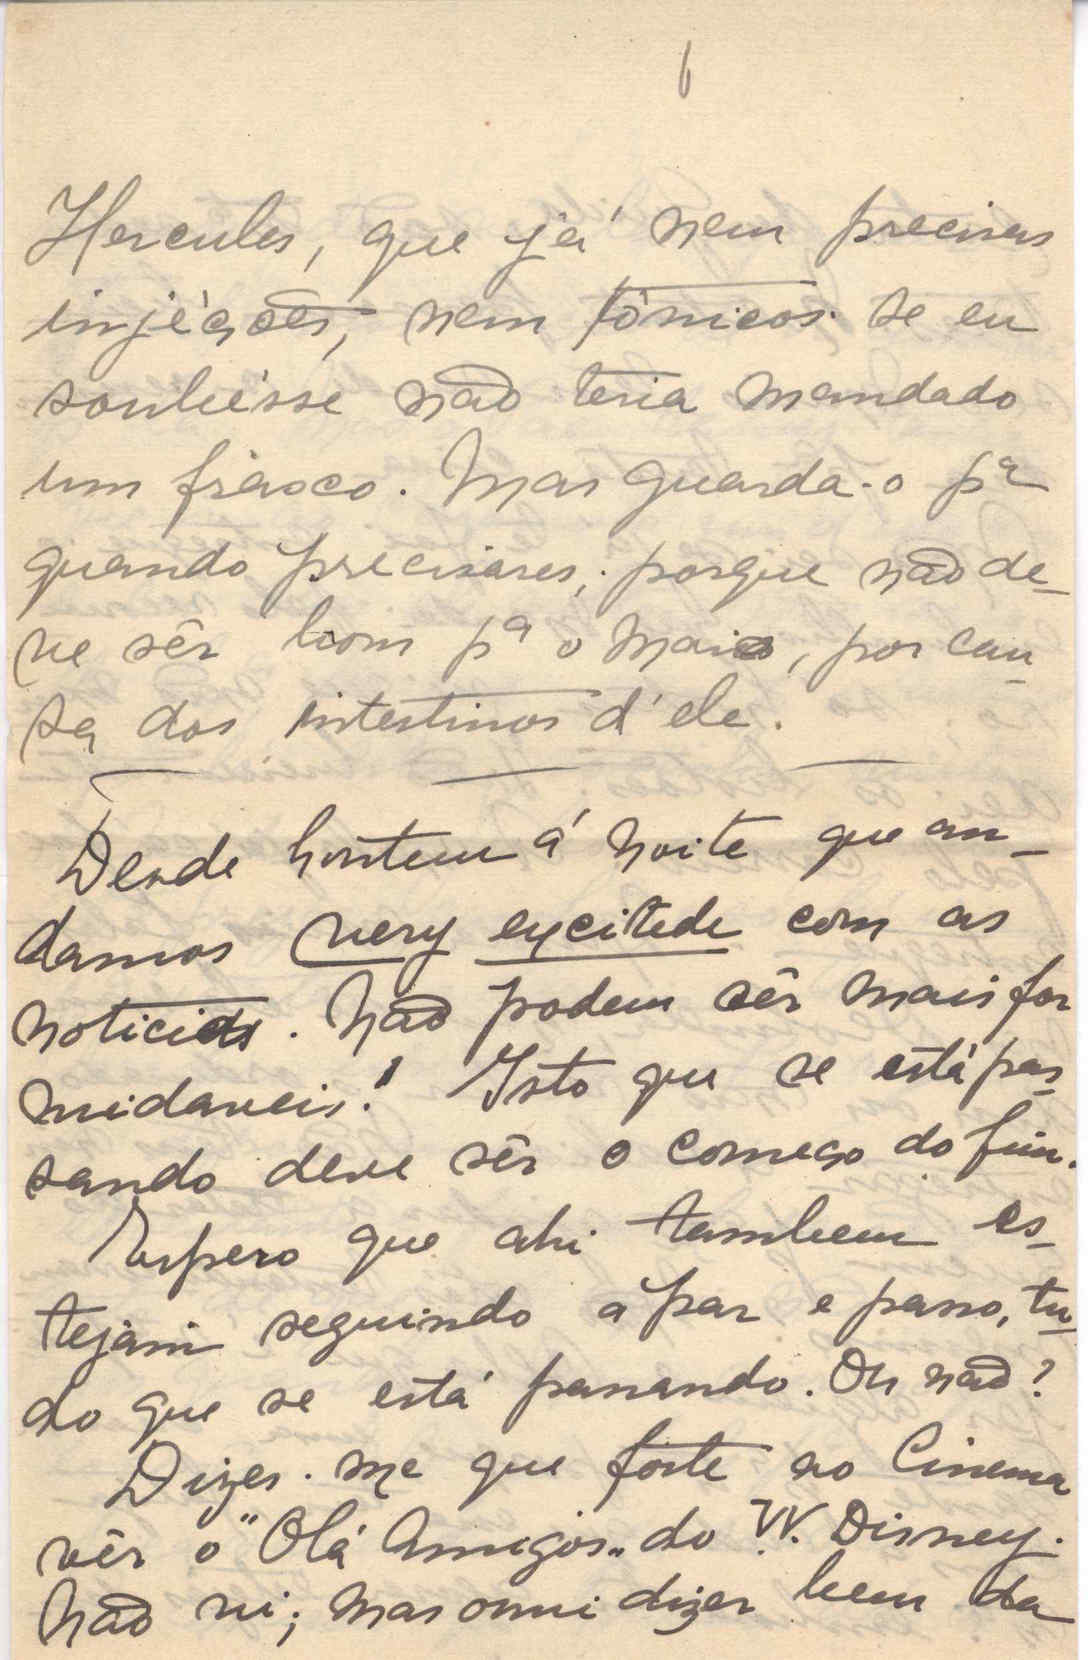 6
Hercules, que já nem precisas
injéções, nem tônicos. Se eu
soubésse não teria mandado
um frasco. Mas guarda-o pª
quando precisares, porque não de-
ve sêr bom pª o Mario, por cau-
sa dos intestinos d'ele.
Desde hontem á noite que an-
damos very excitede com as
noticias. Não podem sêr mais for
midaveis! Isto que se está pas
sando deve sêr o começo do fim.
Espero que ahi tambem es-
tejam seguindo a par e passo, tu-
do que se está passando. Ou não?
Dizes-me que foste ao Cinema
vêr o "Olá Amigos" do W. Disney.
Não vi; mas ouvi dizer bem da